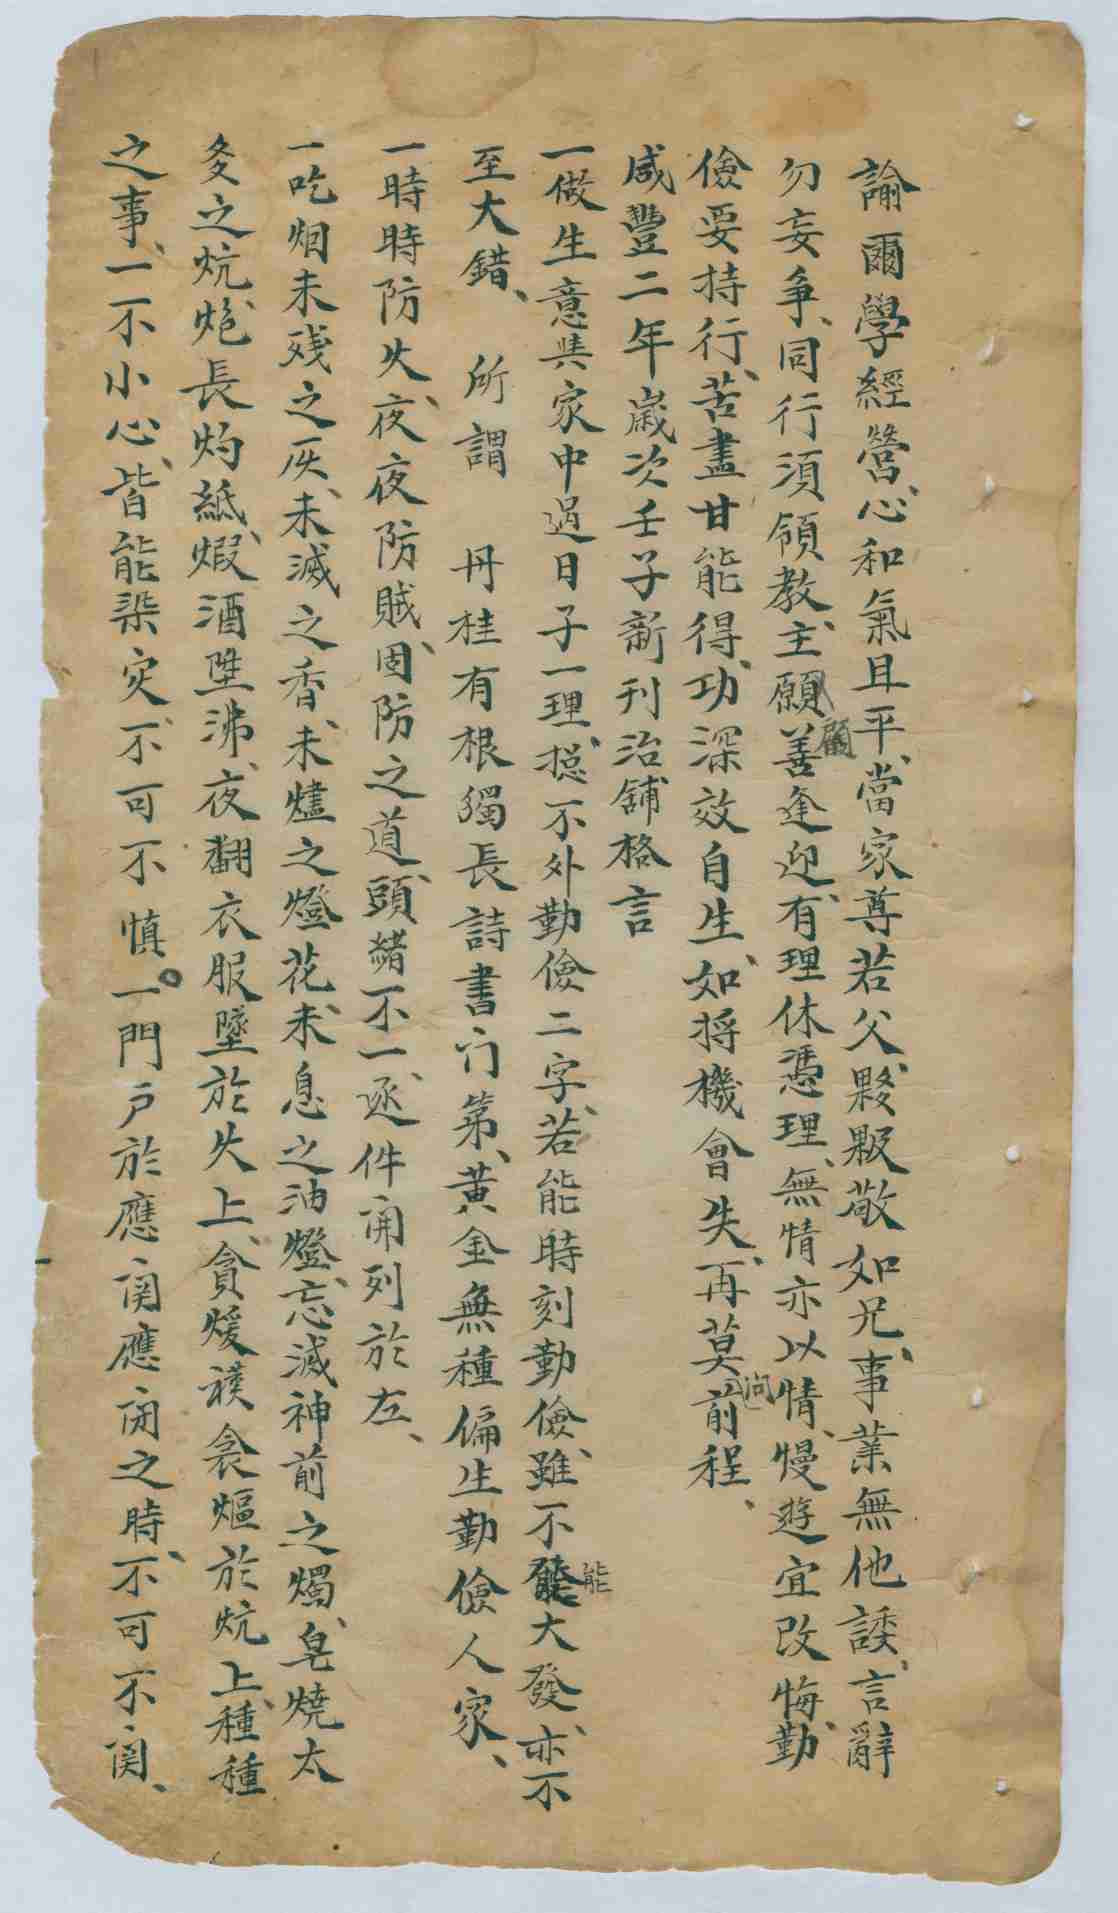 諭爾學經營、心和氣且平、當家尊若父、夥敬如兄、事業無他諉、言辭
勿妄争、同行須領教、主顧善逢迎、有理休憑理、無情亦以情、慢遊宜改悔、勤
儉要持行、苦盡甘能得、功深效自生、如将機會失、再莫問前程、
咸豐二年歲次壬子新刊治舖格言
一做生意與家中過日子一理、捴不外勤儉二字、若能時刻勤儉、雖不能大發、亦不
至大錯、 所謂 丹桂有根獨長詩書门第、黃金無種偏生勤儉人家、
一時時防火、夜夜防賊、固防之道、頭緒不一、逐件開列於左、
一吃烟未残之灰、未滅之香、未燼之燈花、未息之油燈、忘滅神前之燭、皂燒太
多之炕、炮長灼紙、煆酒陞沸、夜翻衣服墜於火上、貪煖被衾熰於炕上、種種
之事、一不小心、皆能柒灾、不可不慎。一門戶於應関應闭之時、不可不関、